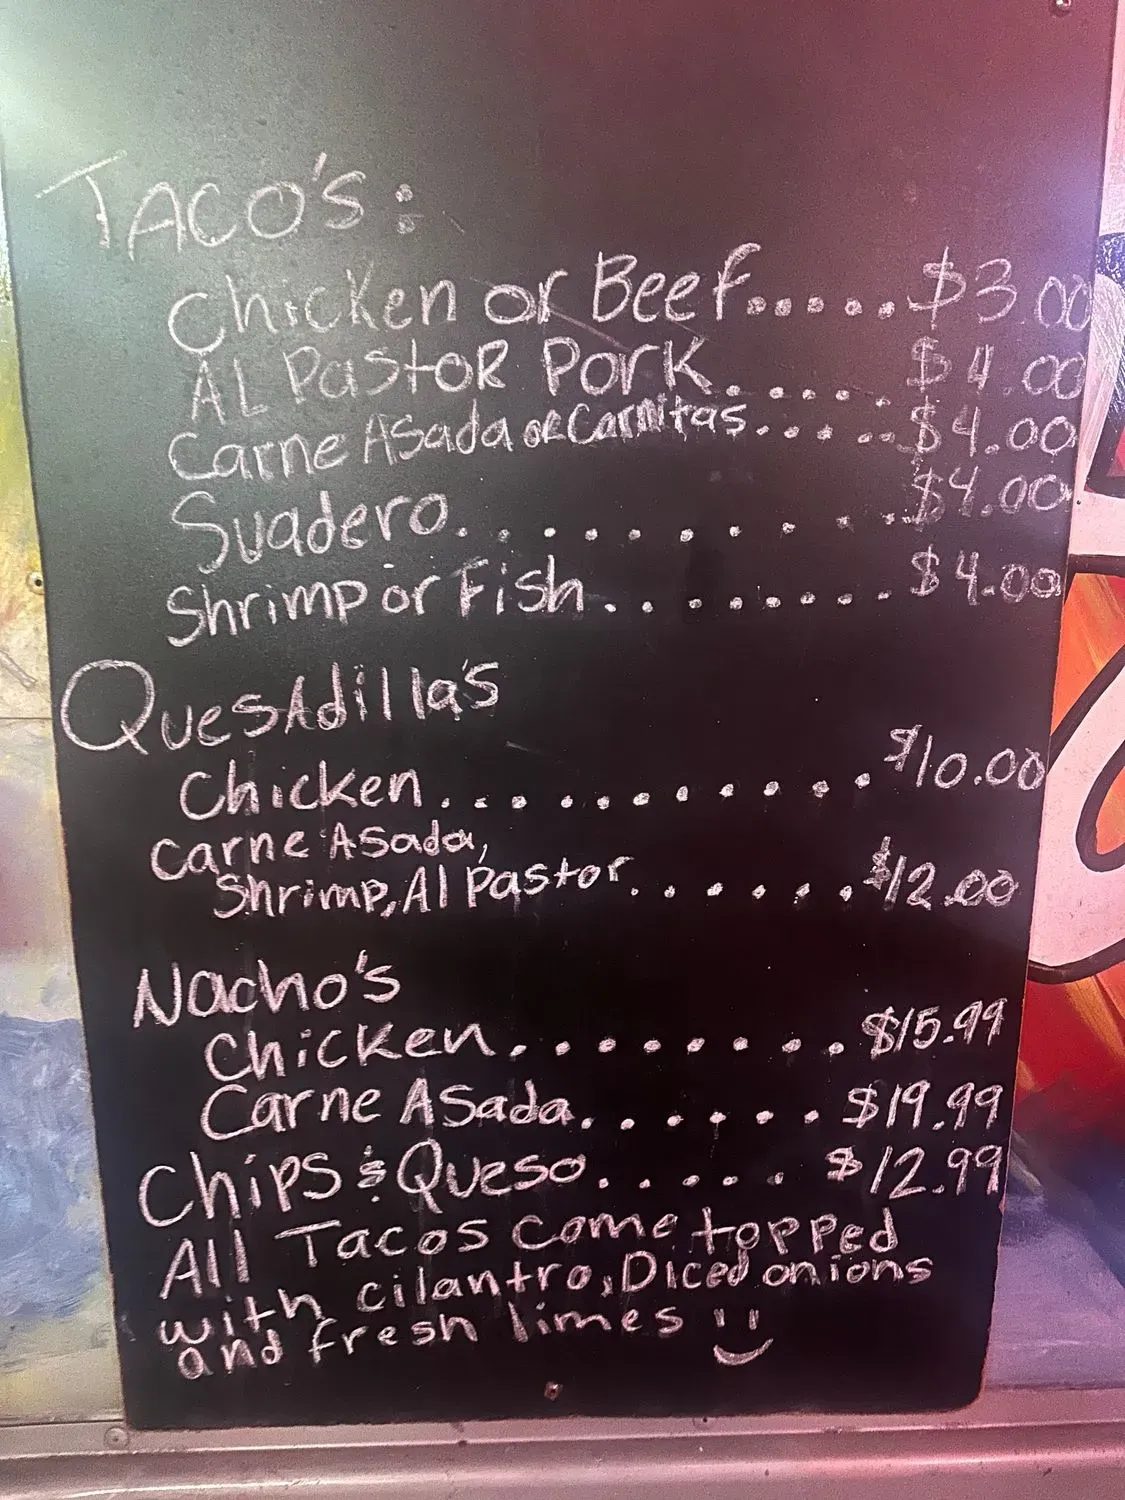 TACO'S:
Chicken or Beef.....$3.00
AL PastoR PorK.....$4.00
Carne Asada or Carnitas.....$4.00
Suadero.........$4.00
Shrimp or Fish........$4.00
QuesAdilla's
Chicken...........$10.00
Carne Asada,
Shrimp, Al Pastor......$12.00
Nacho's
Chicken........$15.99
Carne Asada......$19.99
Chips & Queso.....$12.99
All Tacos come topped
with cilantro, Diced onions
and fresh limes